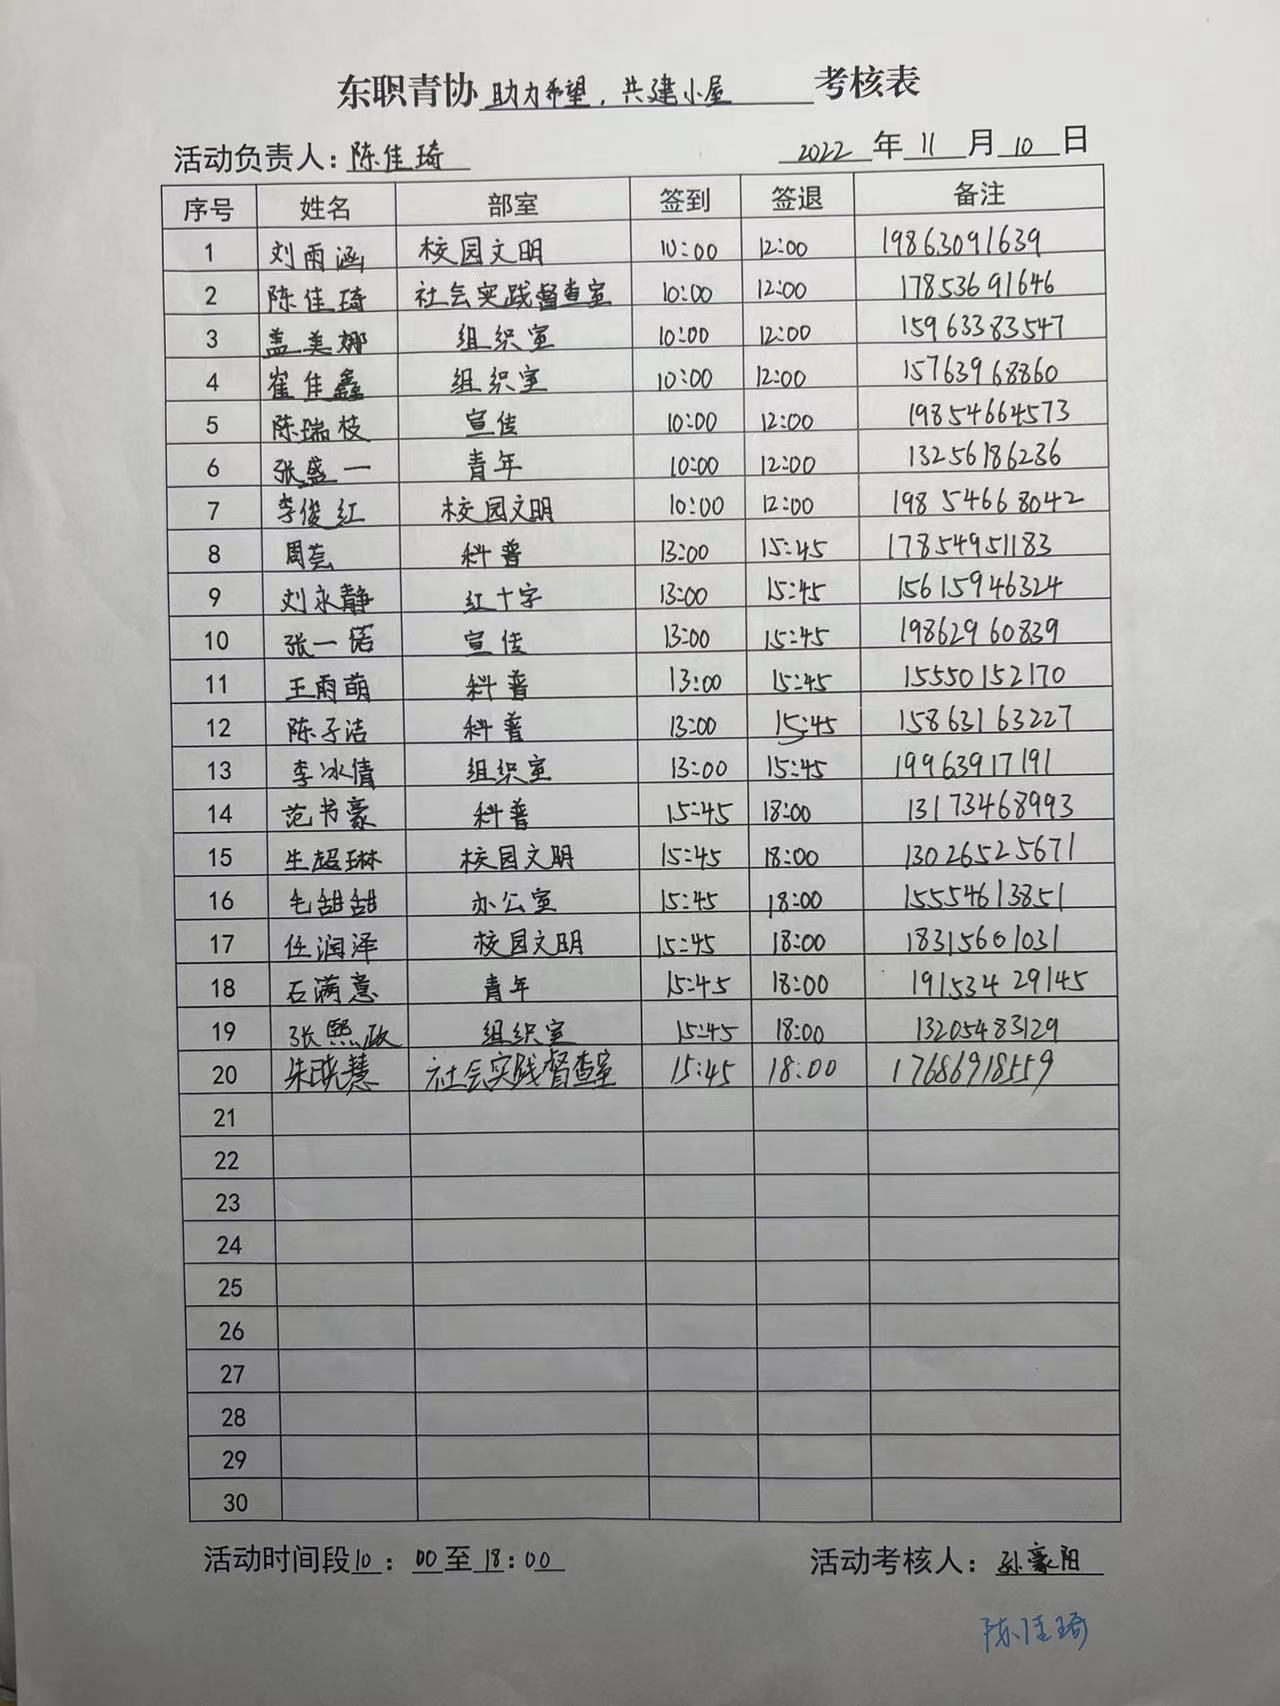 东职青协 助力希望，共建小屋 考核表
活动负责人：陈佳琦 2022 年 11 月 10 日
序号 姓名 部室 签到 签退 备注
1 刘雨涵 校园文明 10:00 12:00 19863091639
2 陈佳琦 社会实践督查室 10:00 12:00 17853691646
3 盖美娜 组织室 10:00 12:00 15963383547
4 崔佳鑫 组织室 10:00 12:00 15763968860
5 陈瑞枝 宣传 10:00 12:00 19854664573
6 张盛一 青年 10:00 12:00 13256186236
7 李俊红 校园文明 10:00 12:00 19854668042
8 周芸 科普 13:00 15:45 17854951183
9 刘永静 红十字 13:00 15:45 15615946324
10 张一诺 宣传 13:00 15:45 19862960839
11 王雨萌 科普 13:00 15:45 15550152170
12 陈子洁 科普 13:00 15:45 15863163227
13 李冰倩 组织室 13:00 15:45 19963917191
14 范书豪 科普 15:45 18:00 13173468993
15 生超琳 校园文明 15:45 18:00 13026525671
16 毛甜甜 办公室 15:45 18:00 15554613851
17 任润泽 校园文明 15:45 18:00 18315601031
18 石满意 青年 15:45 18:00 19153429145
19 张熙政 组织室 15:45 18:00 13205483129
20 朱晓慧 社会实践督查室 15:45 18:00 17686918559
21
22
23
24
25
26
27
28
29
30
活动时间段 10：00 至 18：00 活动考核人：孙豪阳
陈佳琦